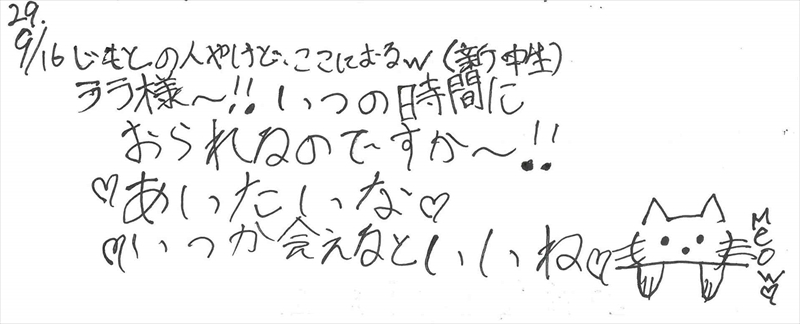 29.
9/16 じもとの人やけど、ここにおるw (新中生)
ララ様〜!! いつの日時間に
おられるのですか〜!!
♡あいたいな♡
♡いつか会えるといいね♡
Meow♡